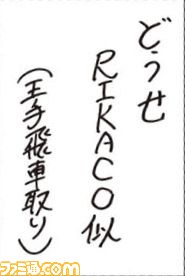 どうせ
RIKACO似
(王手飛車取り)
ファミ通.com